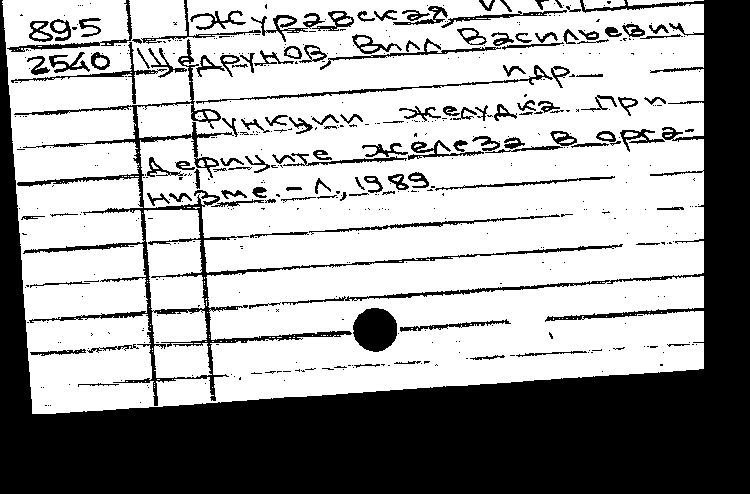 89-5 Журавская, И. Н.,
2540 Щедрунов, Вилл Васильевич
и др.
Функции желудка при
дефиците железа в орга-
низме. - Л., 1989.